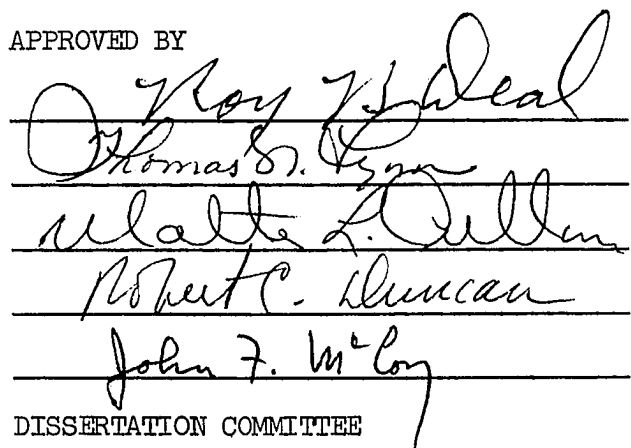 APPROVED BY
Roy B. Deal
Thomas N. Lynn
Walter L.
Robert C. Duncan
John F. McCoy
DISSERTATION COMMITTEE